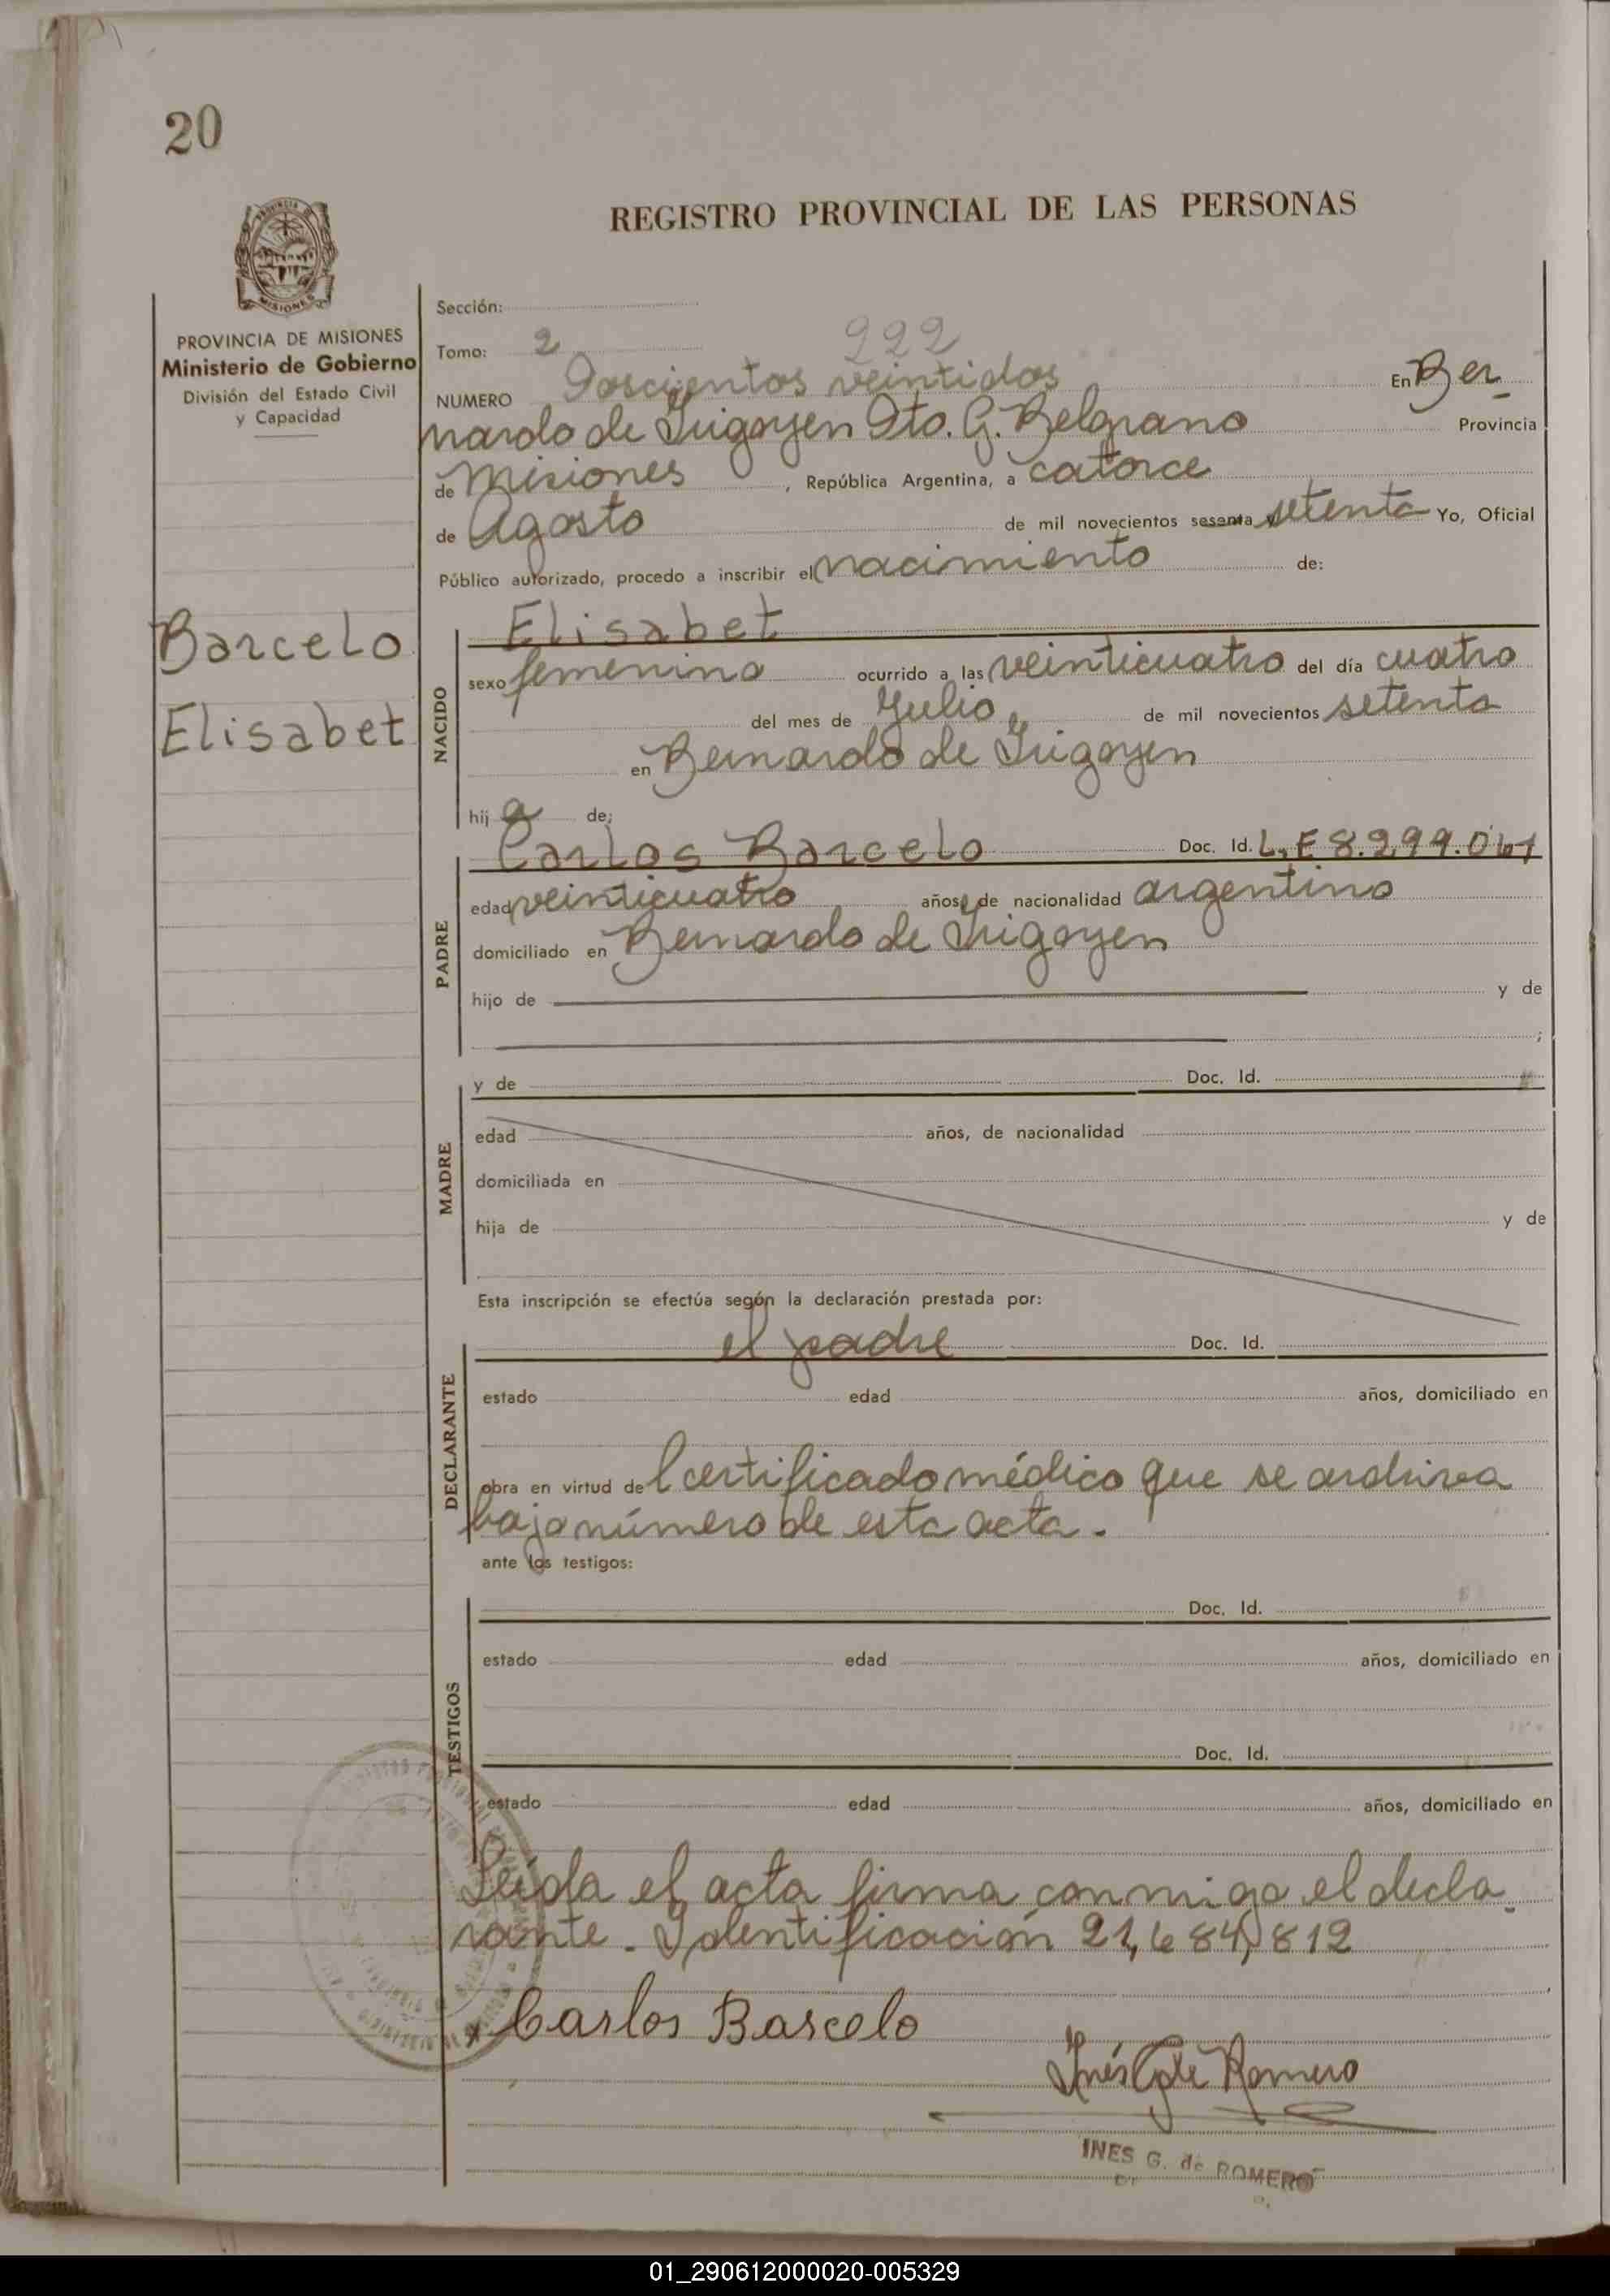 20
REGISTRO PROVINCIAL DE LAS PERSONAS
PROVINCIA DE MISIONES
Ministerio de Gobierno
División del Estado Civil
y Capacidad
Barcelo
Elisabet
Sección:
Tomo: 2 222
NUMERO Doscientos veintidos En Ber
nardo de Irigoyen Dto. G. Belgrano Provincia
de Misiones, República Argentina, a catorce
de Agosto de mil novecientos sesenta setenta Yo, Oficial
Público autorizado, procedo a inscribir el nacimiento de:
NACIDO
Elisabet
sexo femenino ocurrido a las veinticuatro del día cuatro
del mes de Julio de mil novecientos setenta
en Bernardo de Irigoyen
hij a de;
PADRE
Carlos Barcelo Doc. Id. L.E 8.299.061
edad veinticuatro años, de nacionalidad argentino
domiciliado en Bernardo de Irigoyen
hijo de y de
;
MADRE
y de Doc. Id.
edad años, de nacionalidad
domiciliada en
hija de y de
Esta inscripción se efectúa según la declaración prestada por:
DECLARANTE
el padre Doc. Id.
estado edad años, domiciliado en
obra en virtud del certificado médico que se archiva
bajo número de esta acta.
ante los testigos:
TESTIGOS
Doc. Id.
estado edad años, domiciliado en
Doc. Id.
estado edad años, domiciliado en
Leída el acta firma conmigo el decla
rante. Identificación 21,684,812
Carlos Barcelo
Inés G de Romero
INES G. de ROMERO
01_290612000020-005329